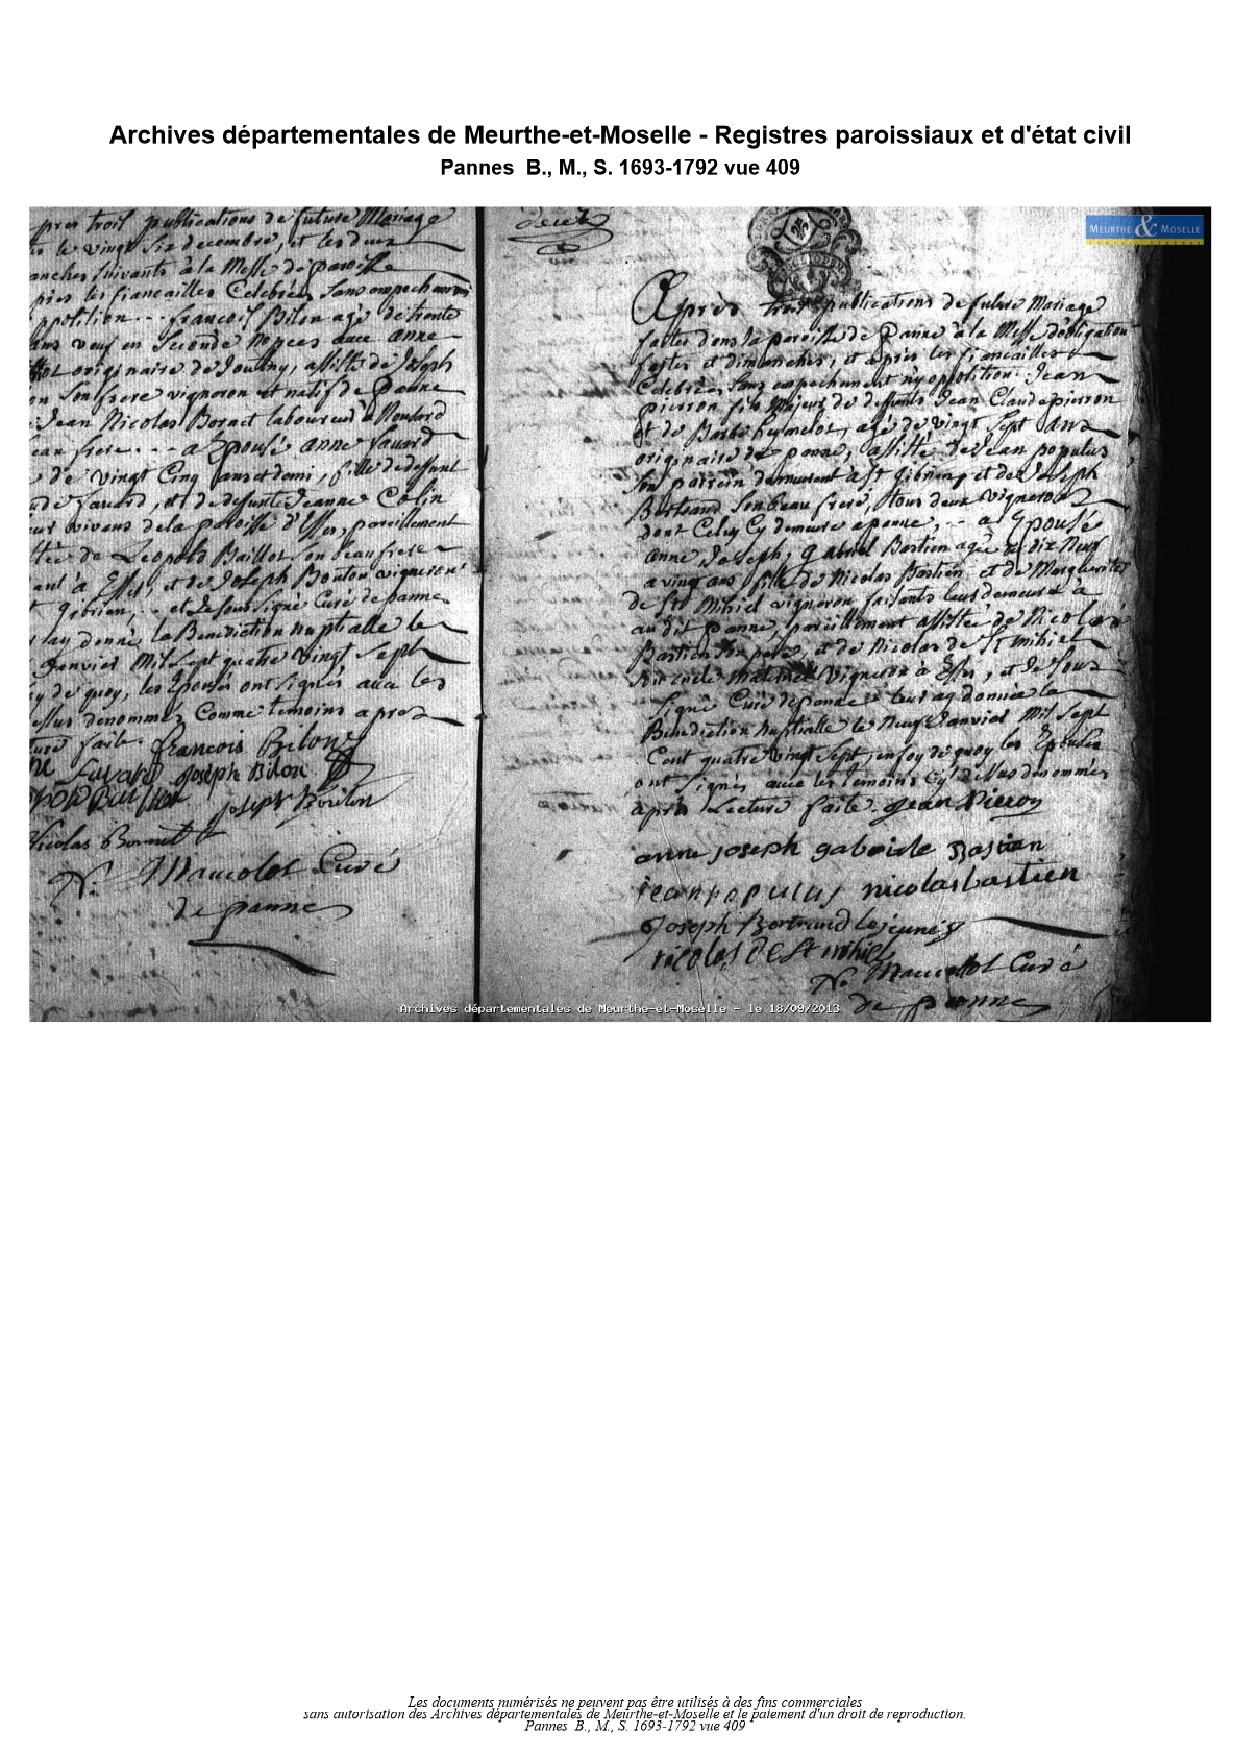 Archives départementales de Meurthe-et-Moselle - Registres paroissiaux et d'état civil
Pannes B., M., S. 1693-1792 vue 409
MEURTHE & MOSELLE
pres trois publications de future Mariage
le vingt six decembre, et les deux
anches suivants à la Messe de paroisse
pres les fiancailles Celebrées sans empechement
ppotition francois Bilon agé de trente
ans veuf en seconde nopces avec anne
originaire de Jouthy, assisté de Joseph
on son frere vigneron et natif de panne
Jean Nicolas Bornet laboureur à
eau frere a Epousé anne
de vingt Cinq ans et demi, fille de deffunt
et de defunte Jeanne Colin
vivans de la paroisse d'Esse, pareillement
tée de Leopold Baillot son beau frere
ant à Esse, et de Joseph Bouton vigneron
et Je sous signé Curé de panne
lay donné la Benediction nuptialle le
Janvier Mil Sept quatre vingt Sept
y de quoy, les Epousés ont signés avec les
essus denommez Comme temoins apres
ture faite. francois Bilon
Joseph Bilon
Joseph Bouton
Nicolas Bornet
N. Maucolot Curé
de panne
Après trois publications de future Mariage
faites dans la paroisse de panne à la Messe d'obligation
festes et dimanches, et après les fiancailles
Celebrées sans empechement n'y oppotition Jean
pierron fils Majeur de deffunts Jean Claude pierron
et de Barbe agé de vingt Sept ans
originaire de panne, assisté de Jean populus
son parrein demeurant à st Gibrien, et de Joseph
Bertrand son beau frere, tous deux vignerons
dont Celuy Cy demeure a panne, a Epousé
anne Joseph, gabriel Bastien agée de dix Neuf
a vingt ans fille de Nicolas Bastien et de Marguerite
de St Mihiel vigneron faisants leur demeure à
au dit panne, pareillement assistée de Nicolas
Bastien son pere, et de Nicolas de St mihiel
vigneron à Esse, et Je sous
signé Curé de panne leur ay donnée la
Benediction nuptialle le Neuf Janvier Mil Sept
Cent quatre vingt Sept, en foy de quoy les Epousés
ont signés avec les temoins Cy dessus denommés
après Lecture faite. Jean Pierron
anne joseph gabriele Bastien
jean populus nicolas bastien
Joseph Bertrand le jeune
nicolas De St mihiel
N. Maucolot Curé
de panne
Archives départementales de Meurthe-et-Moselle - le 18/09/2013
Les documents numérisés ne peuvent pas être utilisés à des fins commerciales
sans autorisation des Archives départementales de Meurthe-et-Moselle et le paiement d'un droit de reproduction.
Pannes B., M., S. 1693-1792 vue 409